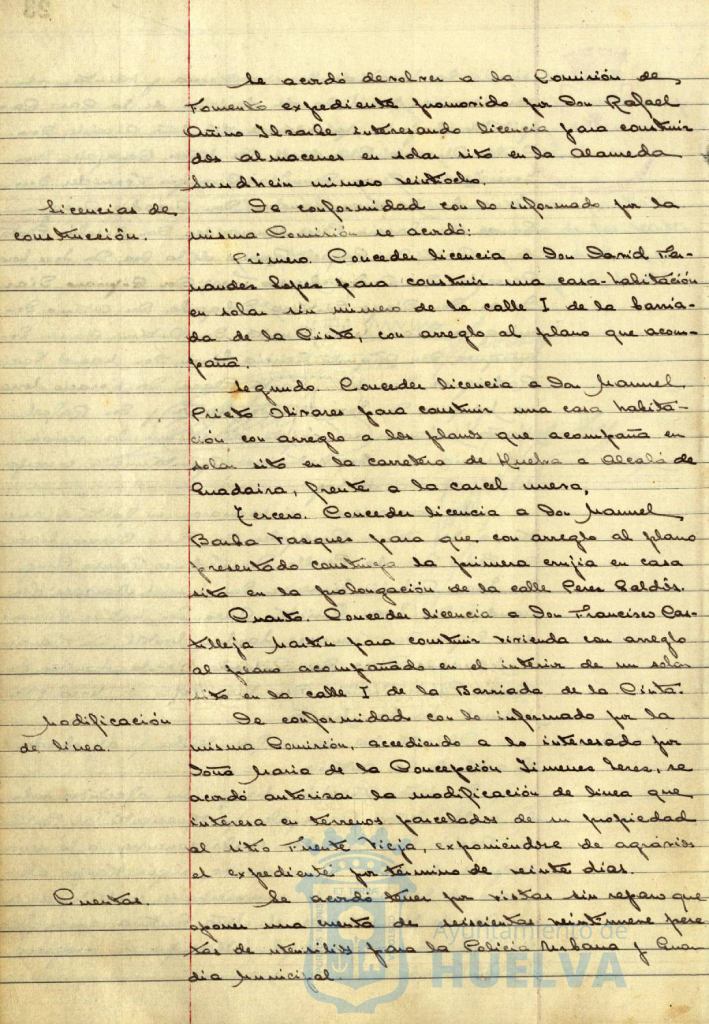 Se acordó devolver a la Comisión de
Fomento expediente promovido por Don Rafael
interesando licencia para construir
dos almacenes en solar sito en la Alameda
Sundhein número veintiocho.
Licencias de
construcción.
De conformidad con lo informado por la
misma Comisión se acordó:
Primero. Conceder licencia a Don David Fer-
nandez Lopez para construir una casa-habitación
en solar sin número de la calle I de la barria-
da de la Cinta, con arreglo al plano que acom-
paña.
Segundo. Conceder licencia a Don Manuel
Prieto Olivares para construir una casa habita-
ción con arreglo a los planos que acompaña en
solar sito en la carretera de Huelva a Alcalá de
Guadaira, frente a la carcel nueva,
Tercero. Conceder licencia a Don Manuel
Barba Vazques para que con arreglo al plano
presentado construya la primera crujia en casa
sita en la prolongación de la calle Perez Galdós.
Cuarto. Conceder licencia a Don Francisco Cas-
tilleja Martin para construir vivienda con arreglo
al plano acompañado en el interior de un solar
sito en la calle I de la Barriada de la Cinta.
Modificación
de linea.
De conformidad con lo informado por la
misma Comisión, accediendo a lo interesado por
Doña Maria de la Concepción Jimenez, se
acordó autorizar la modificación de linea que
interesa en terrenos parcelados de su propiedad
al sitio Fuente Vieja, exponiéndose de agravios
el expediente por término de veinte dias.
Cuentas.
Se acordó tener por vistas sin reparo que
oponer una cuenta de seiscientas veintinueve pese-
tas de utensilios para la Policia Urbana y Guar-
dia Municipal.
Ayuntamiento de
HUELVA